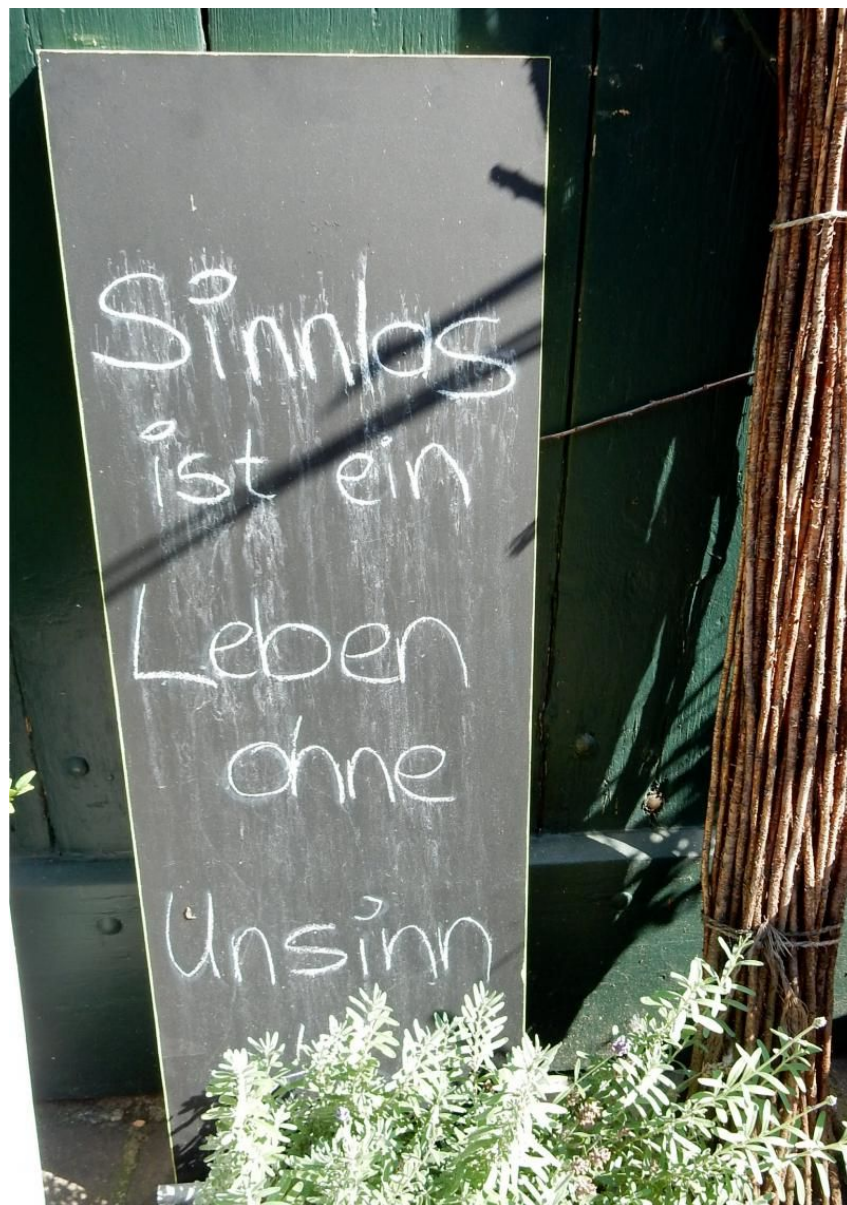 Sinnlos
ist ein
Leben
ohne
Unsinn